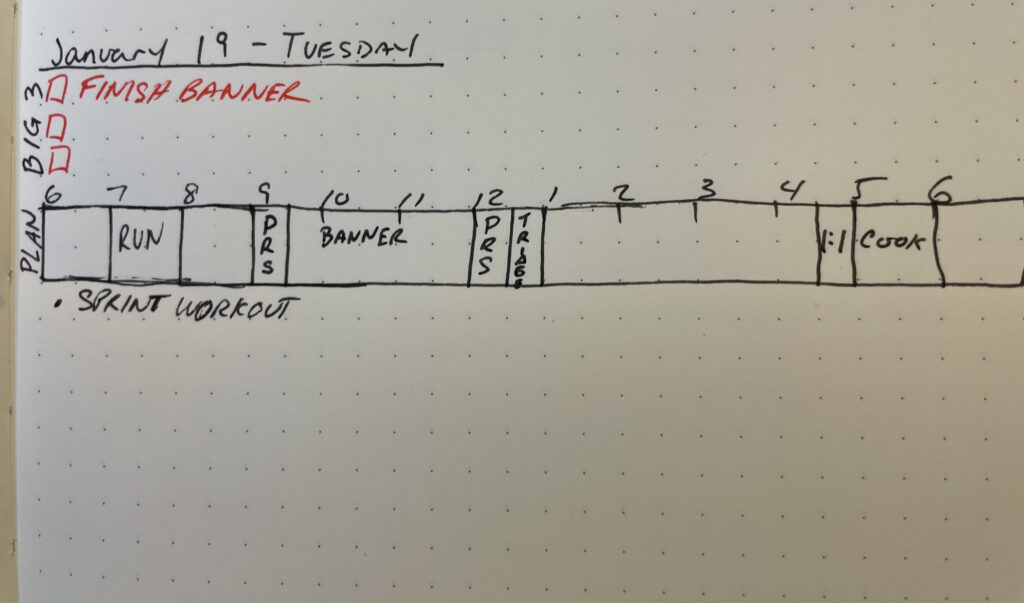 January 19 - TUESDAY
BIG 3
FINISH BANNER
6 7 8 9 10 11 12 1 2 3 4 5 6
PLAN
RUN PRS BANNER PRS 1:1 COOK
• SPRINT WORKOUT